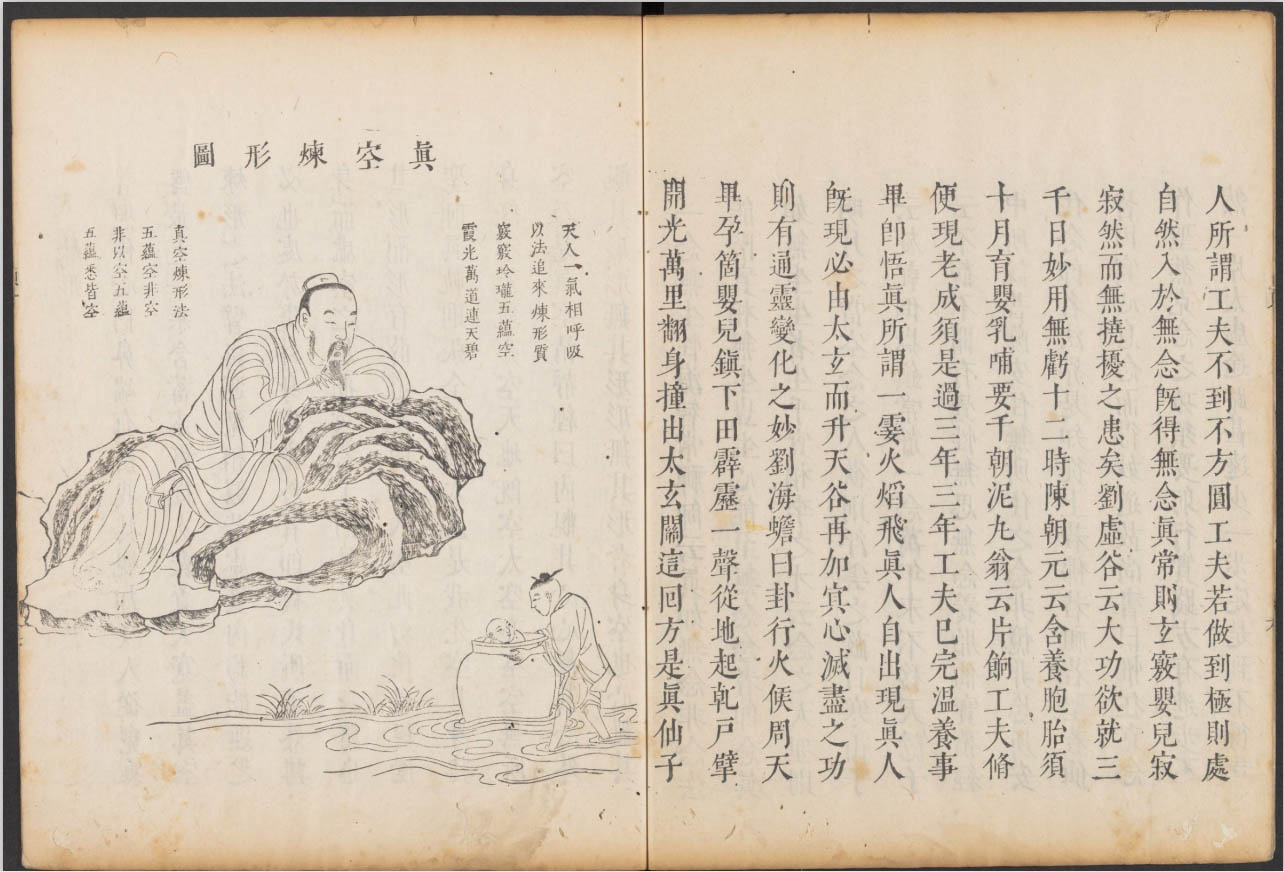 人所謂工夫不到不方圓工夫若做到極則處
自然入於無念旣得無念眞常則玄竅嬰兒寂
寂然而無撓擾之患矣劉虛谷云大功欲就三
千日妙用無虧十二時陳朝元云含養胞胎須
十月育嬰乳哺要千朝泥九翁云片餉工夫脩
便現老成須是過三年三年工夫已完温養事
畢卽悟眞所謂一霎火熖飛眞人自出現眞人
旣現必由太玄而升天谷再加冥心滅盡之功
則有通靈變化之妙劉海蟾曰卦行火候周天
畢孕箇嬰兒鎭下田霹靂一聲從地起乹戸擘
開光萬里翻身撞出太玄關這囘方是眞仙子
眞空煉形圖
天人一氣相呼吸
以法追來煉形質
竅竅玲瓏五蘊空
霞光萬道連天碧
真空煉形法
五蘊空非空
非以空五蘊
五蘊悉皆空